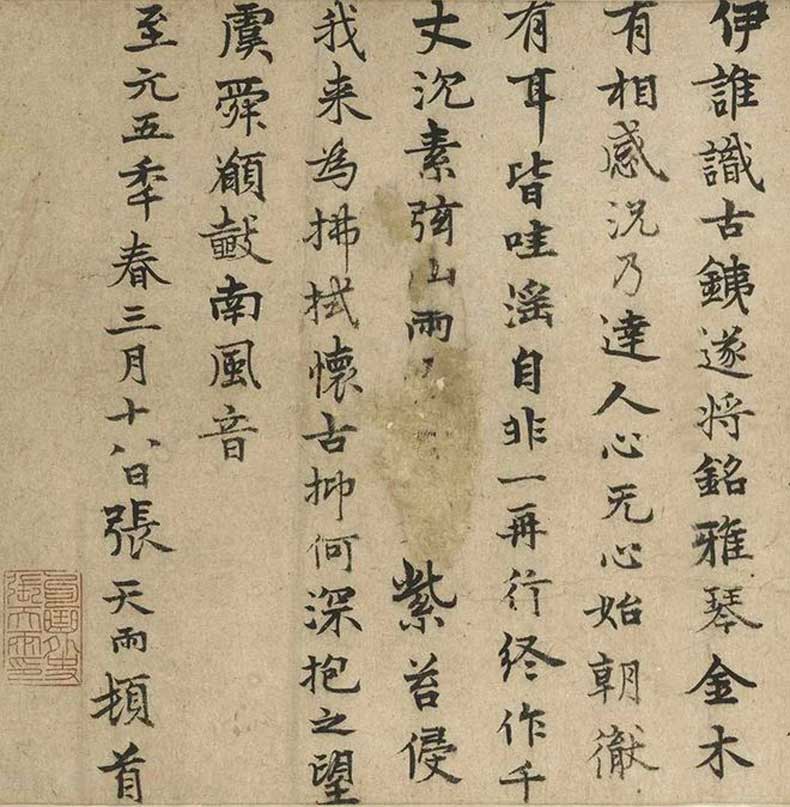 伊誰識古銕遂将銘雅琴金木
有相感況乃達人心无心始朝徹
有耳皆哇滛自非一再行终作千
丈沉素弦山雨紫苔侵
我来為拂拭懷古抑何深抱之望
虞舜願鼓南風音
至元五秊春三月十八日張天雨頓首
句曲外史
張天雨印